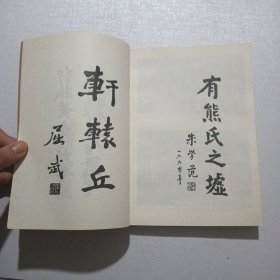 軒轅丘
屈武
有熊氏之墟
朱学范
一九九〇年